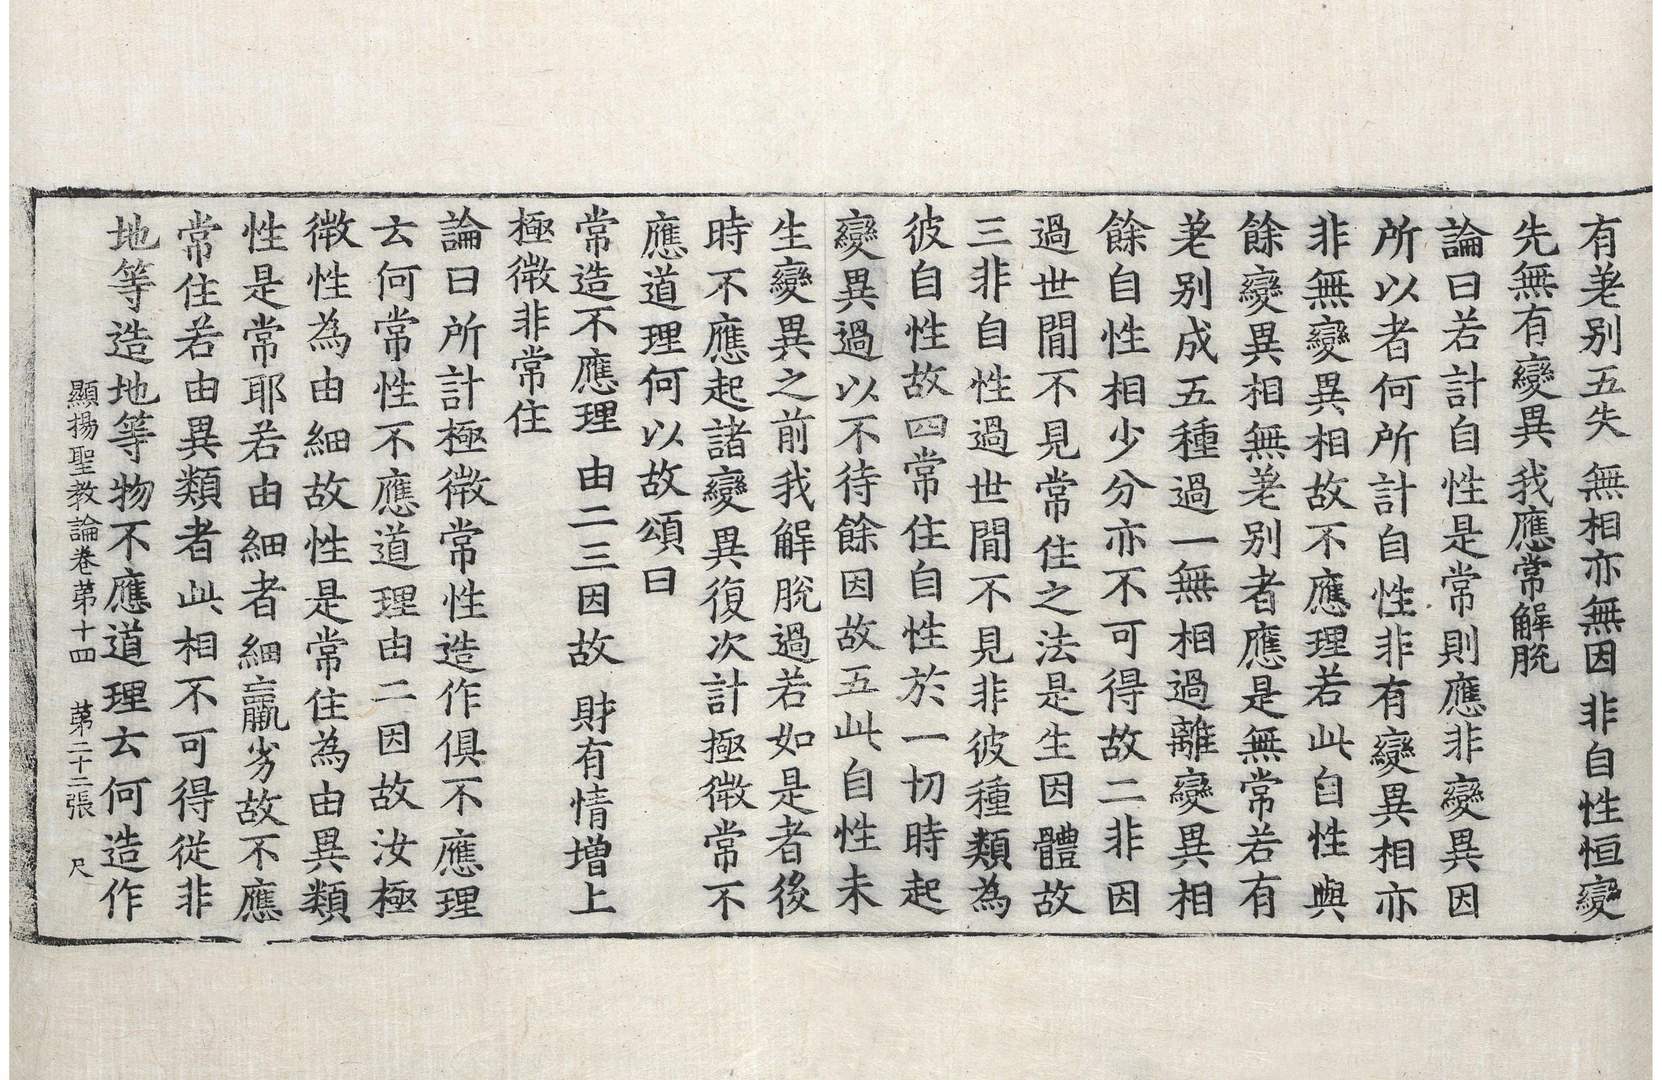 有差别五失 無相亦無因 非自性恒變
先無有變異 我應常解脫
論曰若計自性是常則應非變異因
所以者何所計自性非有變異相亦
非無變異相故不應理若此自性與
餘變異相無差别者應是無常若有
差别成五種過一無相過離變異相
餘自性相少分亦不可得故二非因
過世間不見常住之法是生因體故
三非自性過世間不見非彼種類為
彼自性故四常住自性於一切時起
變異過以不待餘因故五此自性未
生變異之前我解脫過若如是者後
時不應起諸變異復次計極微常不
應道理何以故頌曰
常造不應理 由二三因故 財有情增上
極微非常住
論曰所計極微常性造作俱不應理
云何常性不應道理由二因故汝極
微性為由細故性是常住為由異類
性是常耶若由細者細羸劣故不應
常住若由異類者此相不可得從非
地等造地等物不應道理云何造作
顯揚聖教論卷第十四 第二十二張 尺